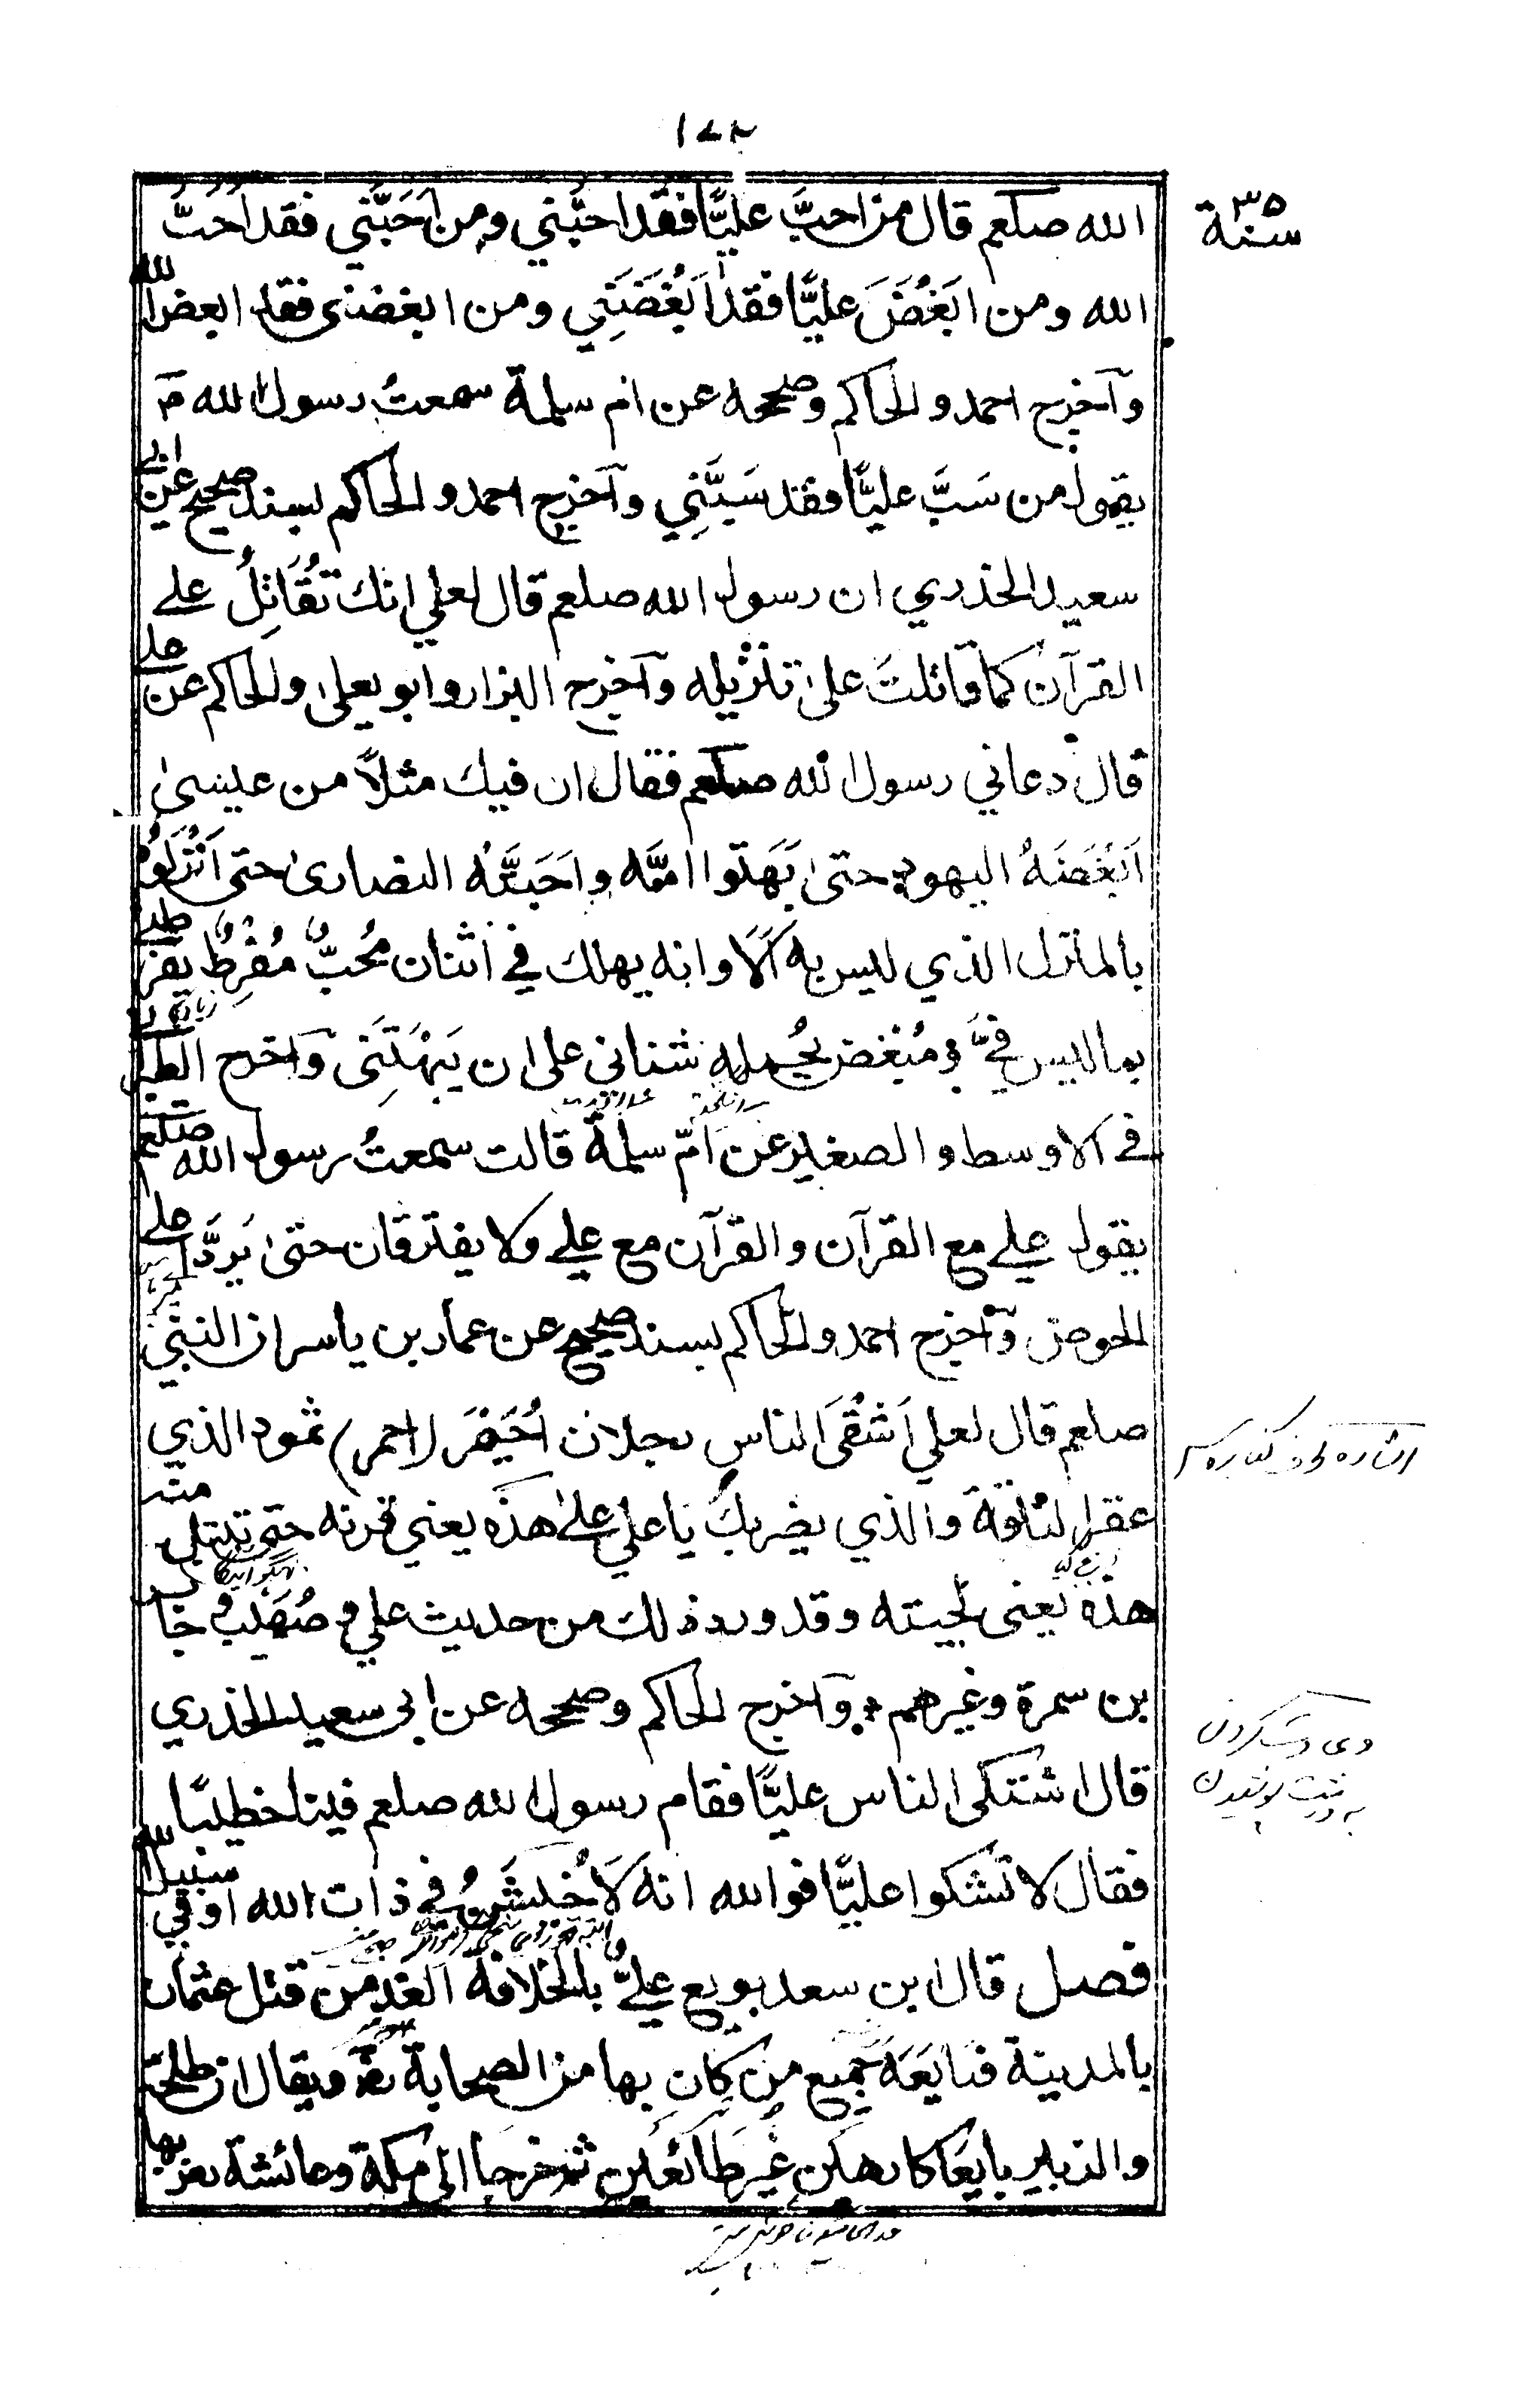 ١٧٣
سنة ٣٥
الله صلعم قال من احبَّ عليًّا فقد احبَّني ومن اَحَبَّني فقد اَحَبَّ
الله ومن اَبْغَضَ عليًّا فقد اَبْغَضَنِي ومن ابغضنى فقد ابغض الله
وآخرج احمد والحاكم وصححه عن ام سلمة سمعتُ رسول الله صم
يقول من سَبَّ عليًّا فقد سَبَّنِي وآخرج احمد والحاكم بسند صحيح عن ابي
سعيد الخذري ان رسول الله صلعم قال لعلي انك تُقَاتِلُ علے
القرآن كما قاتلتَ علىٰ تنزيله وآخرج البزار وابو يعلى والحاكم عن علے
قال دعاني رسول الله صلعم فقال ان فيك مثلاً من عيسىٰ
اَبْغَضَهُ اليهود حتىٰ بَهَتوا امَّه واَحَبَّهُ النصارىٰ حتى اَنْزَلُوْهُ
بالمنزل الذي ليس به اَلَا وانه يهلك فيّ اثنان مُحِبٌّ مُفْرِطٌ يفرطنے
بما ليس فيَّ ومُبْغض يحمله شنانى على ان يَبْهَتَنى وآخرج الطبرا
في الاوسط والصغير عن امّ سلمة قالت سمعتُ رسول الله صلعم
يقول علے مع القرآن والقرآن مع علے ولا يفترقان حتىٰ يَرِدَا علے
الحوض وآخرج احمد والحاكم بسند صحيح عن عمار بن ياسر ان النبي
صلعم قال لعلي اَشْقَى الناس رجلان اُحَيْمَر (احمر) ثمود الذي
عقر الناقة والذي يضربك يا علي علىٰ هذه يعني قرنه حتى تبتل منه
هذه يعنى لحيته وقد ورد ذلك من حديث علي وصُهَيْب وجا
بن سمرة وغيرهم وآخرج الحاكم وصححه عن ابى سعيد الخذري
قال اشتكى الناس عليًّا فقام رسول الله صلعم فينا خطيبًا
فقال لا تشكوا عليًّا فوالله انه لَاُخَيْشَنُ في ذات الله او في سبيل الله
فصل قال ابن سعد بويع عليٌّ بالخلافة الغد من قتل عثمان
بالمدينة فبايَعَه جميع من كان بها من الصحابة رضـ ويقال ان طلحة
والزبير بايَعَا كارهَين غيرَ طائعَين ثم خرجا الى مكة وعائشة رضـ بها